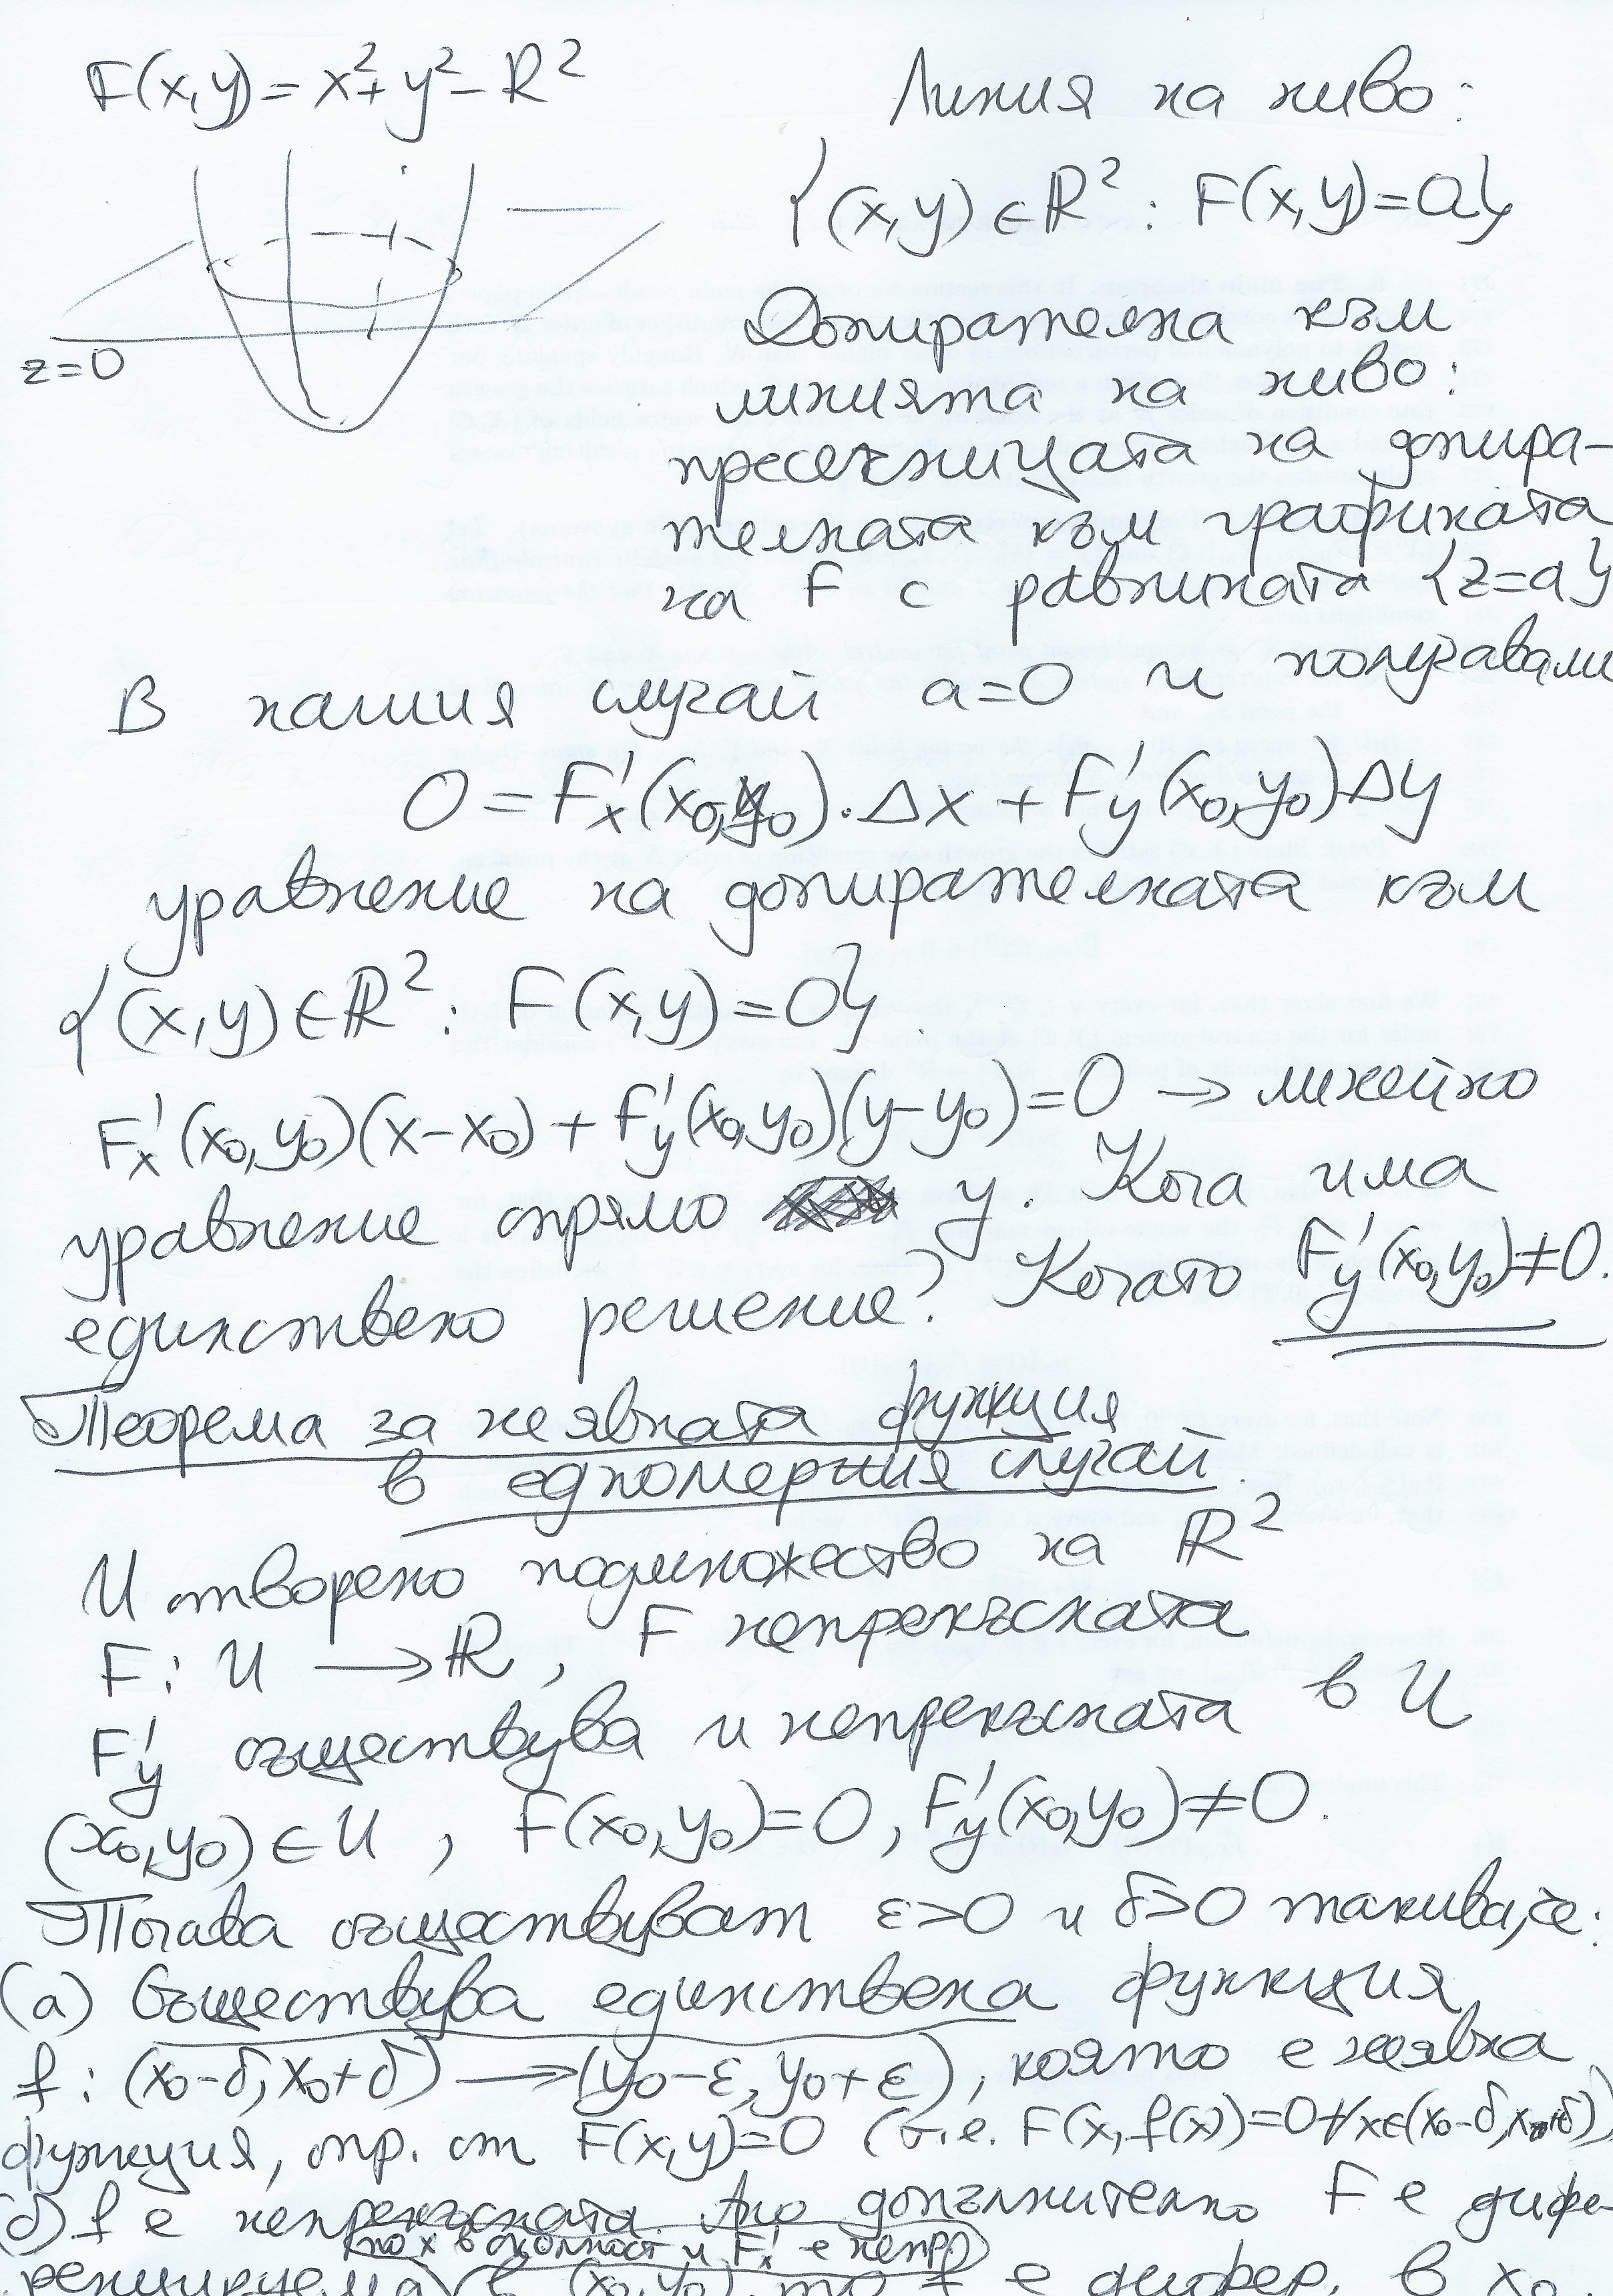 F(x,y) = x² + y² - R²
Линия на ниво:
{(x,y) ∈ ℝ² : F(x,y) = a}
z=0
Допирателна към
линията на ниво:
пресечницата на допира-
телната към графиката
на F с равнината {z=a}
В нашия случай a=0 и получавам
0 = F'x(x₀,y₀).Δx + F'y(x₀,y₀)Δy
уравнение на допирателната към
{(x,y) ∈ ℝ² : F(x,y) = 0}.
F'x(x₀,y₀)(x-x₀) + F'y(x₀,y₀)(y-y₀) = 0 → линейно
уравнение спрямо y. Кога има
единствено решение? Когато F'y(x₀,y₀) ≠ 0.
Теорема за неявната функция
в едномерния случай.
U отворено подмножество на ℝ²
F: U → ℝ, F непрекъсната
F'y съществува и непрекъсната в U
(x₀,y₀) ∈ U, F(x₀,y₀) = 0, F'y(x₀,y₀) ≠ 0.
Тогава съществуват ε>0 и δ>0 такива, че:
(а) Съществува единствена функция
f: (x₀-δ, x₀+δ) → (y₀-ε, y₀+ε), която е неявна
функция, опр. от F(x,y)=0 (т.е. F(x,f(x))=0 ∀x∈(x₀-δ,x₀+δ))
(б) f е непрекъсната. Ако допълнително F е дифе-
(по x в околност и F'x е непр.)
ренцируема в (x₀,y₀), то f е дифер. в x₀